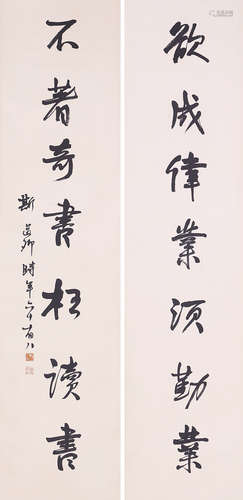 欲成偉業須勤業
不著奇書枉讀書
斯道卿時年六十有八